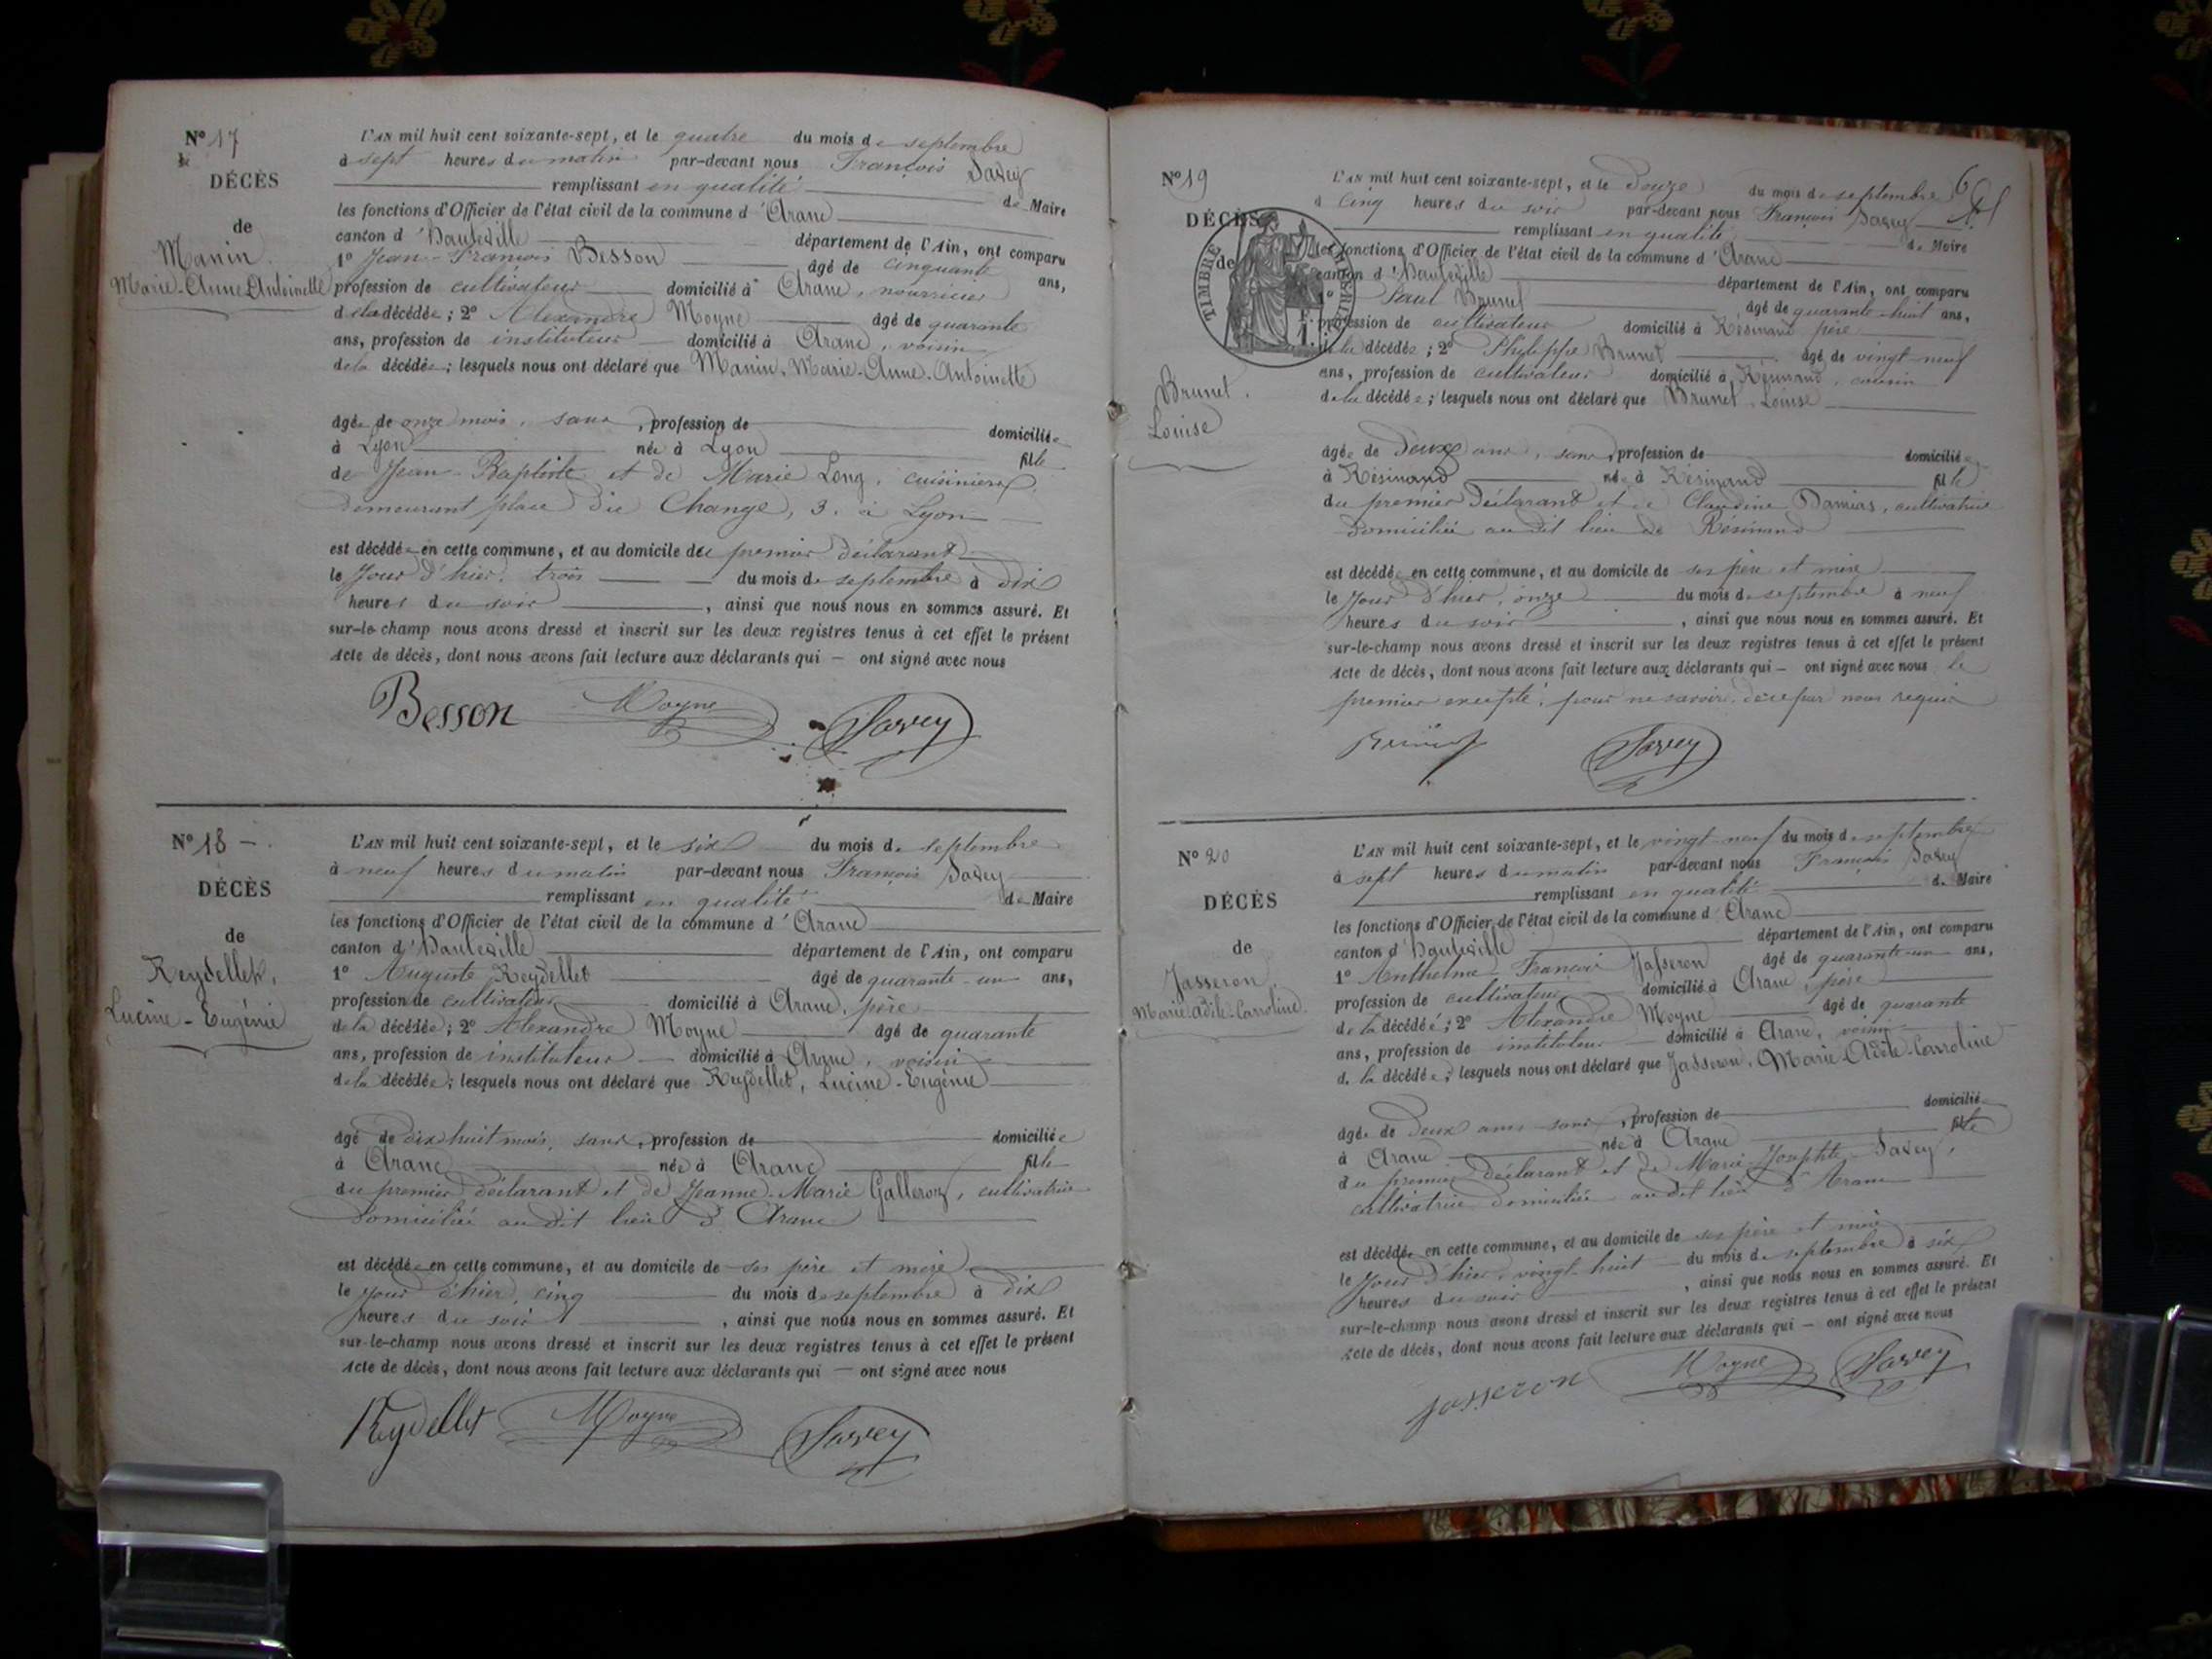 N° 17
DÉCÈS
de
Manin
Marie-Anne-Antoinette
L'AN mil huit cent soixante-sept, et le quatre du mois de septembre
à sept heures du matin par-devant nous François Savey
remplissant en qualité de Maire
les fonctions d'Officier de l'état civil de la commune d'Aranc
canton d'Hauteville département de l'Ain, ont comparu
1° Jean-François Besson âgé de cinquante ans,
profession de cultivateur domicilié à Aranc, nourricier
de la décédée; 2° Alexandre Moyne âgé de quarante
ans, profession de instituteur domicilié à Aranc, voisin
de la décédée; lesquels nous ont déclaré que Manin, Marie-Anne-Antoinette
âgée de onze mois, sans, profession de domiciliée
à Lyon née à Lyon fille
de Jean-Baptiste et de Marie Long, cuisinière
demeurant place du Change, 3, à Lyon
est décédée en cette commune, et au domicile du premier déclarant
le jour d'hier, trois du mois de septembre à dix
heures du soir, ainsi que nous nous en sommes assuré. Et
sur-le-champ nous avons dressé et inscrit sur les deux registres tenus à cet effet le présent
acte de décès, dont nous avons fait lecture aux déclarants qui — ont signé avec nous
Besson Moyne Savey
N° 18
DÉCÈS
de
Reydellet,
Lucine-Eugénie
L'AN mil huit cent soixante-sept, et le six du mois de septembre
à neuf heures du matin par-devant nous François Savey
remplissant en qualité de Maire
les fonctions d'Officier de l'état civil de la commune d'Aranc
canton d'Hauteville département de l'Ain, ont comparu
1° Auguste Reydellet âgé de quarante-un ans,
profession de cultivateur domicilié à Aranc, père
de la décédée; 2° Alexandre Moyne âgé de quarante
ans, profession de instituteur domicilié à Aranc, voisin
de la décédée; lesquels nous ont déclaré que Reydellet, Lucine-Eugénie
âgé de dix huit mois, sans, profession de domiciliée
à Aranc née à Aranc fille
du premier déclarant et de Jeanne-Marie Galleron, cultivatrice
domiciliée au dit lieu d'Aranc
est décédée en cette commune, et au domicile de ses père et mère
le jour d'hier, cinq du mois de septembre à dix
heures du soir, ainsi que nous nous en sommes assuré. Et
sur-le-champ nous avons dressé et inscrit sur les deux registres tenus à cet effet le présent
acte de décès, dont nous avons fait lecture aux déclarants qui — ont signé avec nous
Reydellet Moyne Savey
N° 19
DÉCÈS
de
TIMBRE
Brunet,
Louise
L'AN mil huit cent soixante-sept, et le douze du mois de septembre
à cinq heures du soir par-devant nous François Savey
remplissant en qualité de Maire
les fonctions d'Officier de l'état civil de la commune d'Aranc
canton d'Hauteville département de l'Ain, ont comparu
1° Paul Brunet âgé de quarante-huit ans,
profession de cultivateur domicilié à Résinand père
de la décédée; 2° Philippe Brunet âgé de vingt-neuf
ans, profession de cultivateur domicilié à Résinand, cousin
de la décédée; lesquels nous ont déclaré que Brunet, Louise
âgée de deux ans, sans, profession de domiciliée
à Résinand née à Résinand fille
du premier déclarant et de Claudine Damias, cultivatrice
domiciliée au dit lieu de Résinand
est décédée en cette commune, et au domicile de ses père et mère
le jour d'hier, onze du mois de septembre à neuf
heures du soir, ainsi que nous nous en sommes assuré. Et
sur-le-champ nous avons dressé et inscrit sur les deux registres tenus à cet effet le présent
acte de décès, dont nous avons fait lecture aux déclarants qui — ont signé avec nous le
premier excepté, pour ne savoir, de ce par nous requis
Brunet Savey
N° 20
DÉCÈS
de
Jasseron
Marie-Adèle-Carroline
L'AN mil huit cent soixante-sept, et le vingt-neuf du mois de septembre
à sept heures du matin par-devant nous François Savey
remplissant en qualité de Maire
les fonctions d'Officier de l'état civil de la commune d'Aranc
canton d'Hauteville département de l'Ain, ont comparu
1° Anthelme-François Jasseron âgé de quarante-un ans,
profession de cultivateur domicilié à Aranc, père
de la décédée; 2° Alexandre Moyne âgé de quarante
ans, profession de instituteur domicilié à Aranc, voisin
de la décédée; lesquels nous ont déclaré que Jasseron, Marie-Adèle-Carroline
âgée de deux ans sans, profession de domiciliée
à Aranc née à Aranc fille
du premier déclarant et de Marie-Josephte Savey,
cultivatrice domiciliée au dit lieu d'Aranc
est décédée en cette commune, et au domicile de ses père et mère
le jour d'hier, vingt-huit du mois de septembre à six
heures du soir, ainsi que nous nous en sommes assuré. Et
sur-le-champ nous avons dressé et inscrit sur les deux registres tenus à cet effet le présent
acte de décès, dont nous avons fait lecture aux déclarants qui — ont signé avec nous
Jasseron Moyne Savey